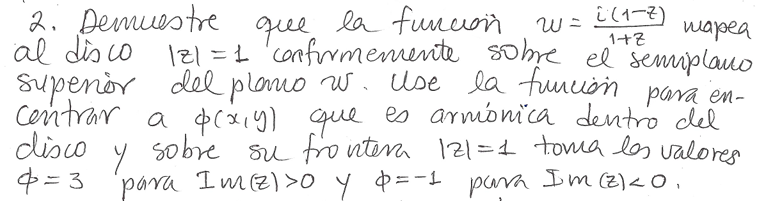 2. Demuestre que la función w = i(1-z)/1+z mapea
al disco |z|=1 conformemente sobre el semiplano
superior del plano w. Use la función para en-
contrar a ϕ(x,y) que es armónica dentro del
disco y sobre su frontera |z|=1 toma los valores
ϕ=3 para Im(z)>0 y ϕ=-1 para Im(z)<0.